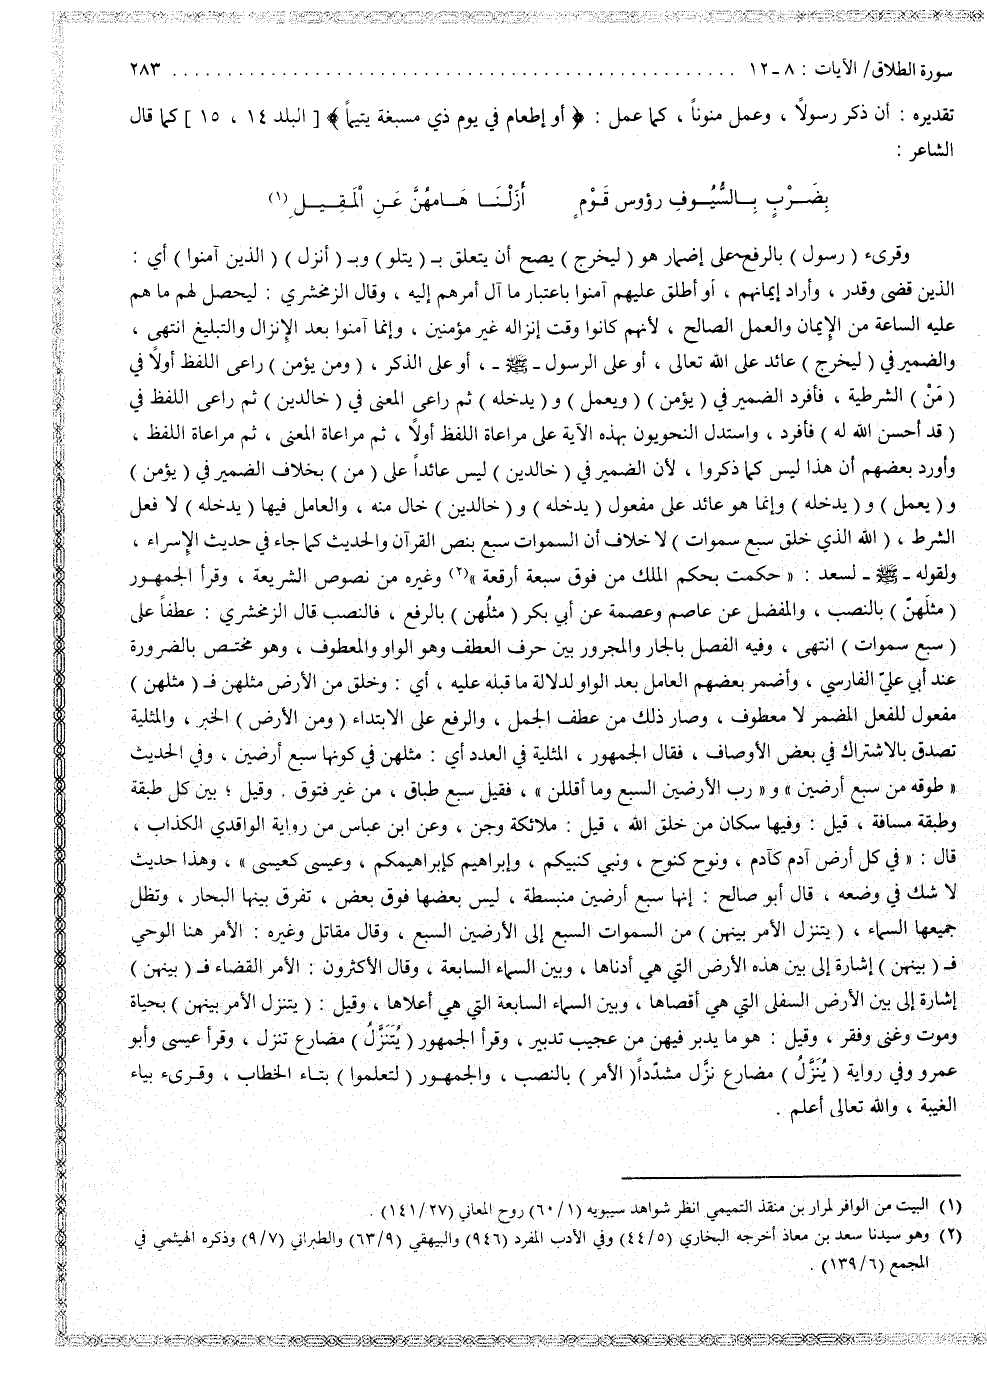 سورة الطلاق/ الآيات : ٨ـ١٢ ........................................................ ٢٨٣
تقديره : أن ذكر رسولاً ، وعمل منوناً ، كما عمل : ﴿ أو إطعام في يوم ذي مسبغة يتيماً ﴾ [ البلد ١٤ ، ١٥ ] كما قال
الشاعر :
بِضَــرْبٍ بِــالسُّيُــوفِ رؤوس قَـوْمٍ أَزَلْـنَــا هَـامهُنَّ عَـنِ اْلمَـقِـيــلِ (١)
وقرىء ( رسول ) بالرفع على إضمار هو ( ليخرج ) يصح أن يتعلق بـ ( يتلو ) وبـ ( أنزل ) ( الذين آمنوا ) أي :
الذين قضى وقدر ، وأراد إيمانهم ، أو أطلق عليهم آمنوا باعتبار ما آل أمرهم إليه ، وقال الزمخشري : ليحصل لهم ما هم
عليه الساعة من الإيمان والعمل الصالح ، لأنهم كانوا وقت إنزاله غير مؤمنين ، وإنما آمنوا بعد الإنزال والتبليغ انتهى ،
والضمير في ( ليخرج ) عائد على الله تعالى ، أو على الرسول ـ ﷺ ـ ، أو على الذكر ، ( ومن يؤمن ) راعى اللفظ أولاً في
( مَنْ ) الشرطية ، فأفرد الضمير في ( يؤمن ) ( ويعمل ) و ( يدخله ) ثم راعى المعنى في ( خالدين ) ثم راعى اللفظ في
( قد أحسن الله له ) فأفرد ، واستدل النحويون بهذه الآية على مراعاة اللفظ أولاً ، ثم مراعاة المعنى ، ثم مراعاة اللفظ ،
وأورد بعضهم أن هذا ليس كما ذكروا ، لأن الضمير في ( خالدين ) ليس عائداً على ( من ) بخلاف الضمير في ( يؤمن )
و ( يعمل ) و ( يدخله ) وإنما هو عائد على مفعول ( يدخله ) و ( خالدين ) حال منه ، والعامل فيها ( يدخله ) لا فعل
الشرط ، ( الله الذي خلق سبع سموات ) لا خلاف أن السموات سبع بنص القرآن والحديث كما جاء في حديث الإسراء ،
ولقوله ـ ﷺ ـ لسعد : « حكمت بحكم الملك من فوق سبعة أرقعة »(٢) وغيره من نصوص الشريعة ، وقرأ الجمهور
( مثلَهنّ ) بالنصب ، والمفضل عن عاصم وعصمة عن أبي بكر ( مثلُهن ) بالرفع ، فالنصب قال الزمخشري : عطفاً على
( سبع سموات ) انتهى ، وفيه الفصل بالجار والمجرور بين حرف العطف وهو الواو والمعطوف ، وهو مختص بالضرورة
عند أبي عليّ الفارسي ، وأضمر بعضهم العامل بعد الواو لدلالة ما قبله عليه ، أي : وخلق من الأرض مثلهن فـ ( مثلهن )
مفعول للفعل المضمر لا معطوف ، وصار ذلك من عطف الجمل ، والرفع على الابتداء ( ومن الأرض ) الخبر ، والمثلية
تصدق بالاشتراك في بعض الأوصاف ، فقال الجمهور ، المثلية في العدد أي : مثلهن في كونها سبع أرضين ، وفي الحديث
« طوقه من سبع أرضين » و « رب الأرضين السبع وما أقللن » ، فقيل سبع طباق ، من غير فتوق . وقيل ؛ بين كل طبقة
وطبقة مسافة ، قيل : وفيها سكان من خلق الله ، قيل : ملائكة وجن ، وعن ابن عباس من رواية الواقدي الكذاب ،
قال : « في كل أرض آدم كآدم ، ونوح كنوح ، ونبي كنبيكم ، وإبراهيم كإبراهيمكم ، وعيسى كعيسى » ، وهذا حديث
لا شك في وضعه ، قال أبو صالح : إنها سبع أرضين منبسطة ، ليس بعضها فوق بعض ، تفرق بينها البحار ، وتظل
جميعها السماء ، ( يتنزل الأمر بينهن ) من السموات السبع إلى الأرضين السبع ، وقال مقاتل وغيره : الأمر هنا الوحي
فـ ( بينهن ) إشارة إلى بين هذه الأرض التي هي أدناها ، وبين السماء السابعة ، وقال الأكثرون : الأمر القضاء فـ ( بينهن )
إشارة إلى بين الأرض السفلى التي هي أقصاها ، وبين السماء السابعة التي هي أعلاها ، وقيل : ( يتنزل الأمر بينهن ) بحياة
وموت وغنى وفقر ، وقيل : هو ما يدبر فيهن من عجيب تدبير ، وقرأ الجمهور ( يُتَنَزَّلُ ) مضارع تنزل ، وقرأ عيسى وأبو
عمرو وفي رواية ( يُنَزَّلُ ) مضارع نزَّل مشدّداً ( الأمر ) بالنصب ، والجمهور ( لتعلموا ) بتاء الخطاب ، وقرىء بياء
الغيبة ، والله تعالى أعلم .
(١) البيت من الوافر لمرار بن منقذ التميمي انظر شواهد سيبويه (٦٠/١) روح المعاني (١٤١/٢٧) .
(٢) وهو سيدنا سعد بن معاذ أخرجه البخاري (٤٤/٥) وفي الأدب المفرد (٩٤٦) والبيهقي (٦٣/٩) والطبراني (٩/٧) وذكره الهيثمي في
المجمع (١٣٩/٦) .